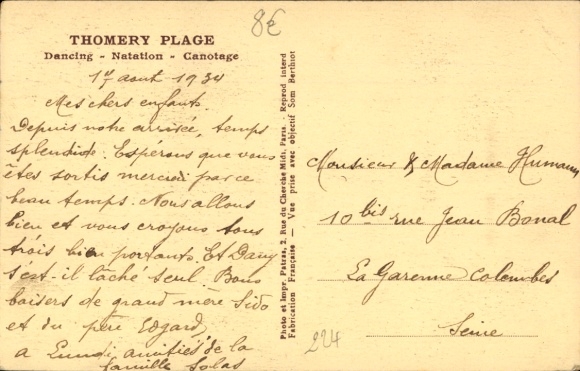 8€
THOMERY PLAGE
Dancing - Natation - Canotage
1er aout 1934
Mes chers enfants.
Depuis notre arrivée, temps
splendide. Espérons que vous
êtes sortis mercredi par ce
beau temps. Nous allons
bien et vous croyons tous
trois bien portants. Et Dany
s'est-il lâché seul. Bons
baisers de grand mere Sido
et du père Edgard,
a Lundi, amitiés de la
famille Solas
Photo et Impr. Patras, 2, Rue du Cherche Midi, Paris. Reprod interd
Fabrication Française — Vue prise avec objectif Som Berthiot
Monsieur & Madame Humann
10 bis rue Jean Bonal
La Garenne Colombes
Seine
224